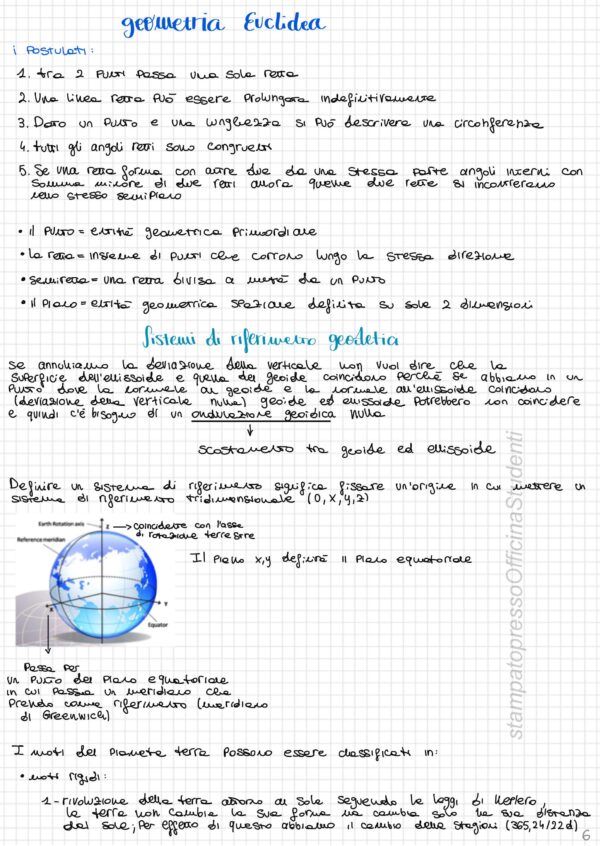 geometria Euclidea
i Postulati:
1. tra 2 Punti Passa una sola retta
2. Una linea retta può essere Prolungata indefinitivamente
3. Dato un Punto e una lunghezza si può descrivere una circonferenza
4. tutti gli angoli retti sono congruenti
5. Se una retta forma con altre due da una stessa parte angoli interni con
somma minore di due retti allora quelle due rette si incontrerano
nello stesso semipiano
• il Punto = entità geometrica Primordiale
• la retta = insieme di Punti che corrono lungo la stessa direzione
• semiretta = una retta divisa a metà da un Punto
• il Piano = entità geometrica spaziale definita su sole 2 dimensioni
Sistemi di riferimento geodetia
se annulliamo la deviazione della verticale non vuol dire che la
superficie dell'ellissoide e quella del geoide coincidano perchè se abbiamo in un
Punto dove la normale al geoide e la normale all'ellissoide coincidono
(deviazione della verticale nulla) geoide ed ellissoide Potrebbero non coincidere
e quindi c'è bisogno di un ondulazione geoidica nulla
scostamento tra geoide ed ellissoide
Definire un sistema di riferimento significa fissare un'origine in cui mettere un
sistema di riferimento tridimensionale (O, x, y, z)
Earth Rotation axis
z
coincidente con l'asse
di rotazione terrestre
Reference meridian
Il Piano x,y definirà il Piano equatoriale
x
Y
Equator
Passa per
un Punto del Piano equatoriale
in cui passa un meridiano che
Prendo come riferimento (meridiano
di Greenwich)
I moti del Pianeta terra Possono essere classificati in:
• moti rigidi:
1- rivoluzione della terra attorno al sole seguendo le leggi di Keplero,
la terra non cambia la sua forma ma cambia solo la sua distanza
dal sole; Per effetto di questo abbiamo il cambio delle stagioni (365,24/22d)
stampatopressoOfficinaStudenti
6